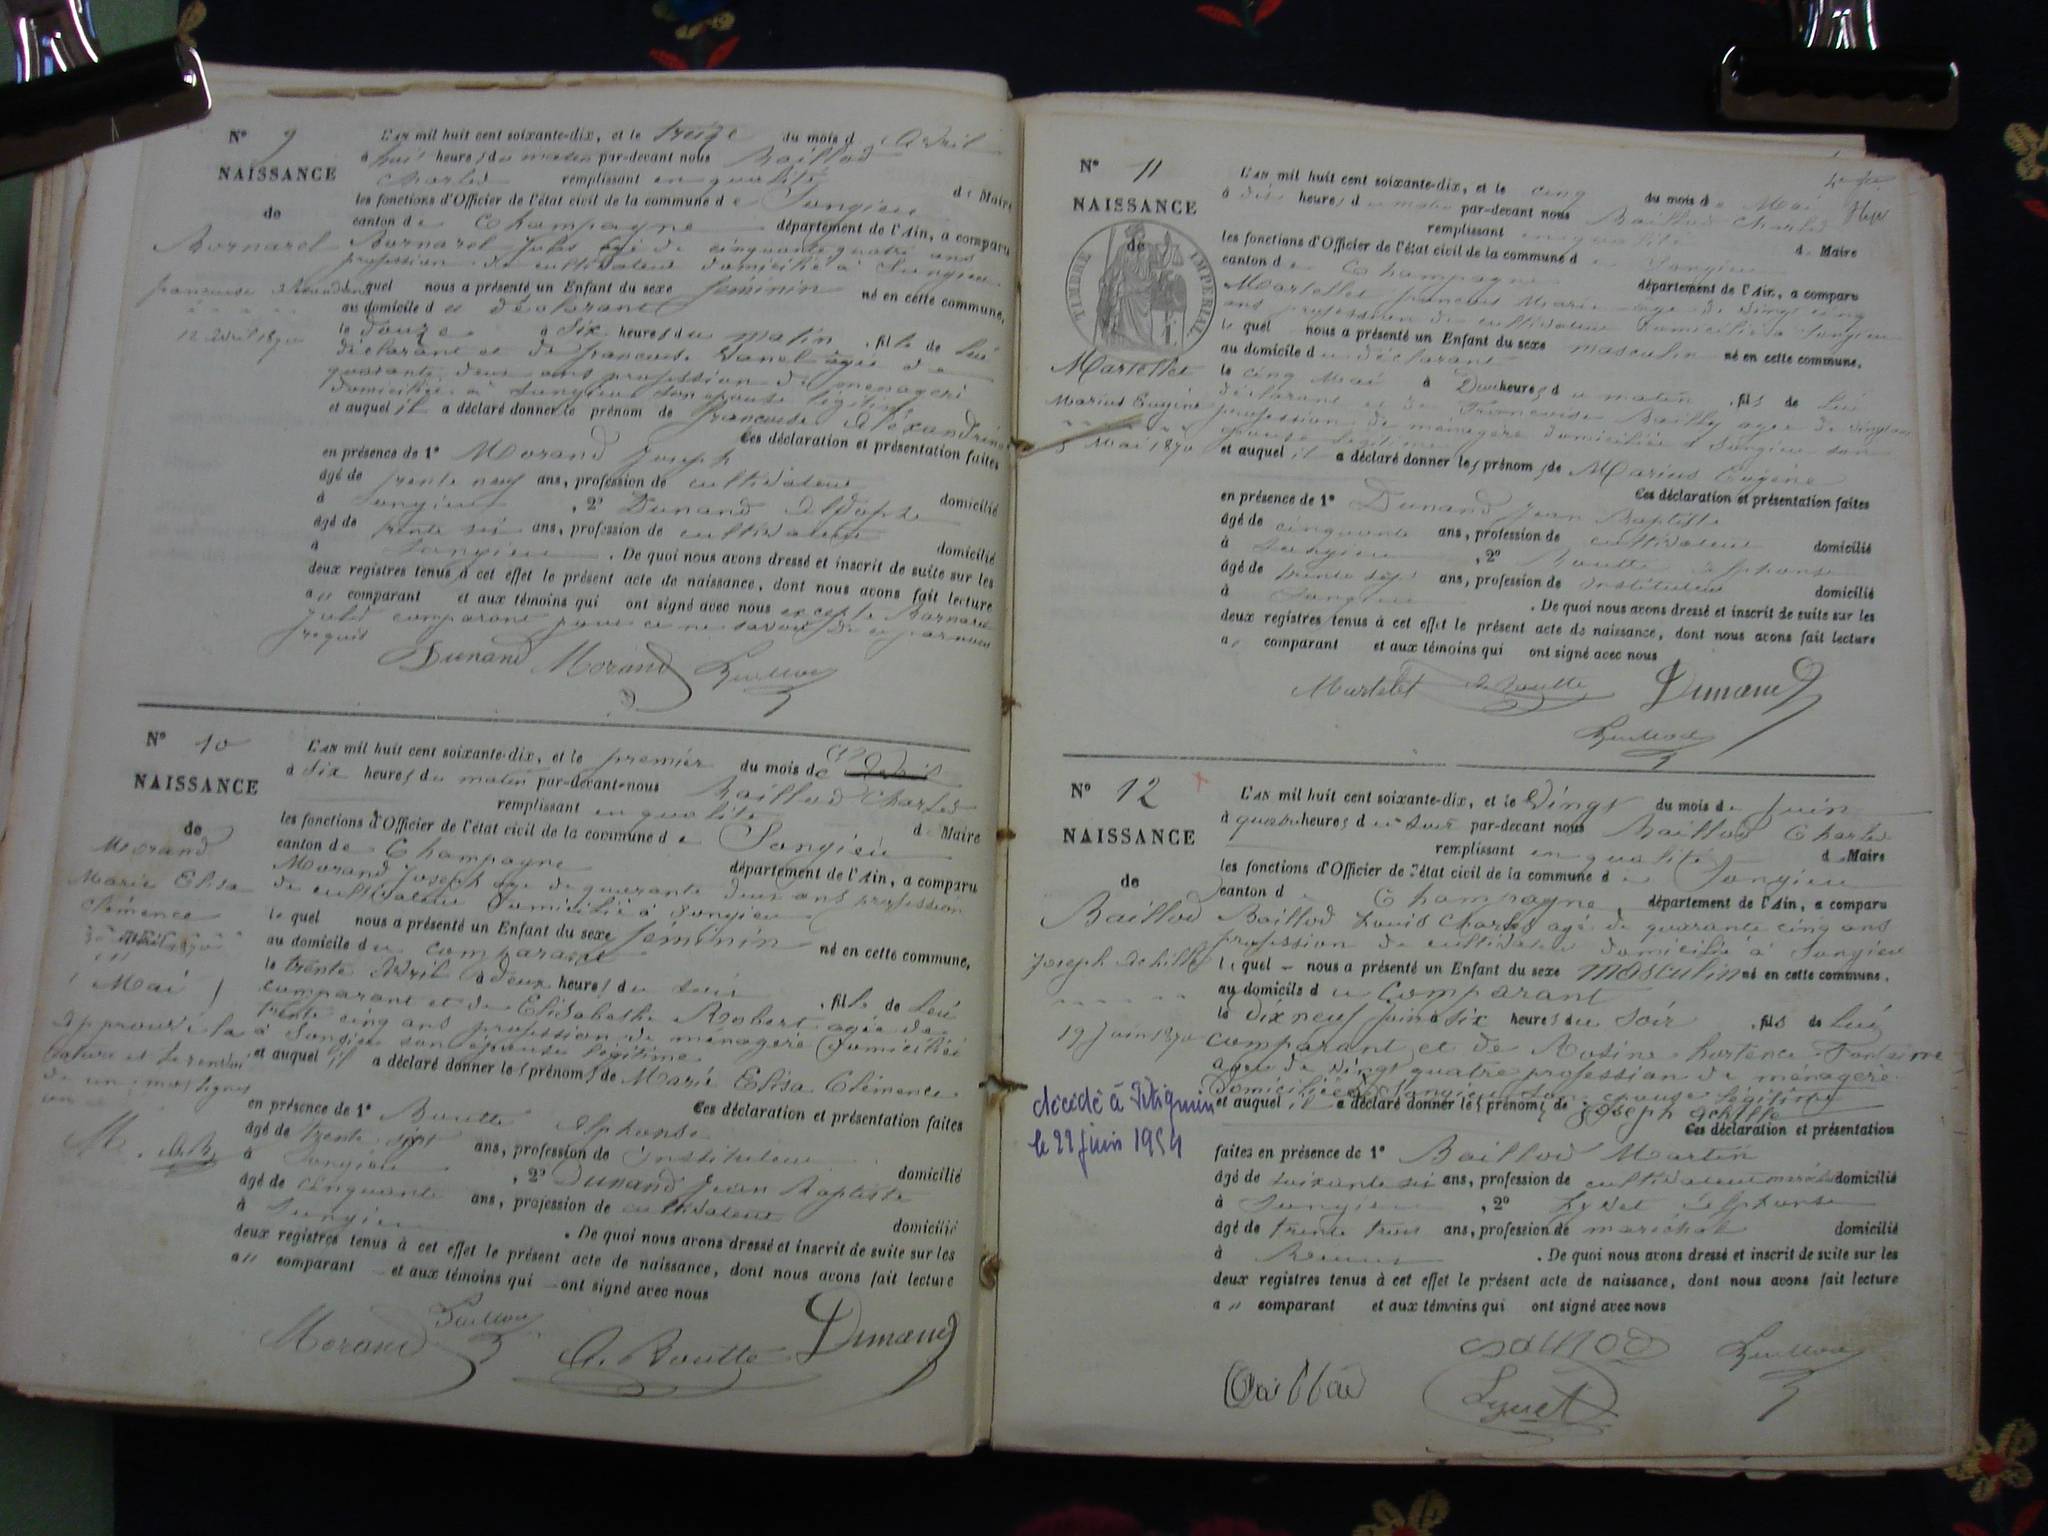 N° 9
NAISSANCE
de
Bornarel
françoise Alexandrine
12 avril 1870
L'AN mil huit cent soixante-dix, et le treize du mois d Avril
à huit heures du matin par-devant nous Baillod
Charles remplissant en qualité de Maire
les fonctions d'Officier de l'état civil de la commune de Songieu
canton de Champagne département de l'Ain, a comparu
Bornarel Jules âgé de cinquante quatre ans
profession de cultivateur domicilié à Songieu
lequel nous a présenté un Enfant du sexe féminin né en cette commune,
au domicile du déclarant
le douze à six heures du matin, fille de lui
déclarant et de françoise âgée de
quarante deux ans profession de ménagère
domiciliée à Songieu son épouse légitime
et auquel il a déclaré donner le prénom de françoise Alexandrine
Ces déclaration et présentation faites
en présence de 1° Morand Joseph
âgé de trente neuf ans, profession de cultivateur domicilié
à Songieu, 2° Dunand Adolphe
âgé de trente six ans, profession de cultivateur domicilié
à Songieu. De quoi nous avons dressé et inscrit de suite sur les
deux registres tenus à cet effet le présent acte de naissance, dont nous avons fait lecture
au comparant et aux témoins qui ont signé avec nous excepté Bornarel
Jules comparant pour ne savoir de ce par nous
requis
Dunand Morand Baillod
N° 10
NAISSANCE
de
Morand
Marie Elisa
Clémence
30 Avril 1870
1 Mai
Approuvé la
rature et le renvoi
M. A.B.
L'AN mil huit cent soixante-dix, et le premier du mois de Avril
à six heures du matin par-devant-nous Baillod Charles
remplissant en qualité d Maire
les fonctions d'Officier de l'état civil de la commune de Songieu
canton de Champagne département de l'Ain, a comparu
Morand Joseph âgé de quarante deux ans profession
de cultivateur domicilié à Songieu
lequel nous a présenté un Enfant du sexe féminin né en cette commune,
au domicile du comparant
le trente Avril à deux heures du soir, fille de lui
comparant et de Elisabethe Robert agée de
trente cinq ans profession de ménagère domiciliée
à Songieu son épouse légitime
et auquel il a déclaré donner les prénoms de Marie Elisa Clémence
Ces déclaration et présentation faites
en présence de 1° Boutte Alphonse
âgé de trente sept ans, profession de Instituteur domicilié
à Songieu, 2° Dunand Jean Baptiste
âgé de cinquante ans, profession de cultivateur domicilié
à Songieu. De quoi nous avons dressé et inscrit de suite sur les
deux registres tenus à cet effet le présent acte de naissance, dont nous avons fait lecture
au comparant et aux témoins qui ont signé avec nous
Morand Baillod A. Boutte Dunand
N° 11
NAISSANCE
de
TIMBRE IMPERIAL
Martellet
Marius Eugène
5 Mai 1870
L'AN mil huit cent soixante-dix, et le cinq du mois de Mai
à dix heures du matin par-devant nous Baillod Charles
remplissant en qualité de Maire
les fonctions d'Officier de l'état civil de la commune d Songieu
canton de Champagne département de l'Ain, a comparu
Martellet françois Marie âgé de vingt cinq
ans profession de cultivateur domicilié à Songieu
lequel nous a présenté un Enfant du sexe masculin né en cette commune.
au domicile du déclarant
le cinq Mai à Deux heures du matin, fils de lui
déclarant et de Françoise Bailly agée de vingt ans
profession de ménagère domiciliée à Songieu son
épouse légitime
et auquel il a déclaré donner les prénoms de Marius Eugène
Ces déclaration et présentation faites
en présence de 1° Dunand Jean Baptiste
âgé de cinquante ans, profession de cultivateur domicilié
à Songieu, 2° Boutte Alphonse
âgé de trente sept ans, profession de Instituteur domicilié
à Songieu. De quoi nous avons dressé et inscrit de suite sur les
deux registres tenus à cet effet le présent acte de naissance, dont nous avons fait lecture
au comparant et aux témoins qui ont signé avec nous
Martelet A. Boutte Dunand
Baillod
N° 12
NAISSANCE
de
Baillod
Joseph Achille
19 Juin 1870
décédé à Vétigmin
le 22 juin 1954
L'AN mil huit cent soixante-dix, et le Vingt du mois de Juin
à quatre heures du soir par-devant nous Baillod Charles
remplissant en qualité d Maire
les fonctions d'Officier de l'état civil de la commune de Songieu
canton d Champagne, département de l'Ain, a comparu
Baillod Louis Charles agé de quarante cinq ans
profession de cultivateur domicilié à Songieu
lequel nous a présenté un Enfant du sexe masculin né en cette commune.
au domicile du Comparant
le dix neuf juin à six heures du soir, fils de lui
comparant et de Rosine hortence Fontaine
agée de vingt quatre profession de ménagère
domiciliée à Songieu son épouse légitime
et auquel il a déclaré donner les prénoms de Joseph Achille
Ces déclaration et présentation
faites en présence de 1° Baillod Martin
âgé de soixante six ans, profession de cultivateur domicilié
à Songieu, 2° Lyvet Alphonse
âgé de trente trois ans, profession de maréchal domicilié
à. De quoi nous avons dressé et inscrit de suite sur les
deux registres tenus à cet effet le présent acte de naissance, dont nous avons fait lecture
au comparant et aux témoins qui ont signé avec nous
Baillod Lyvet Baillod